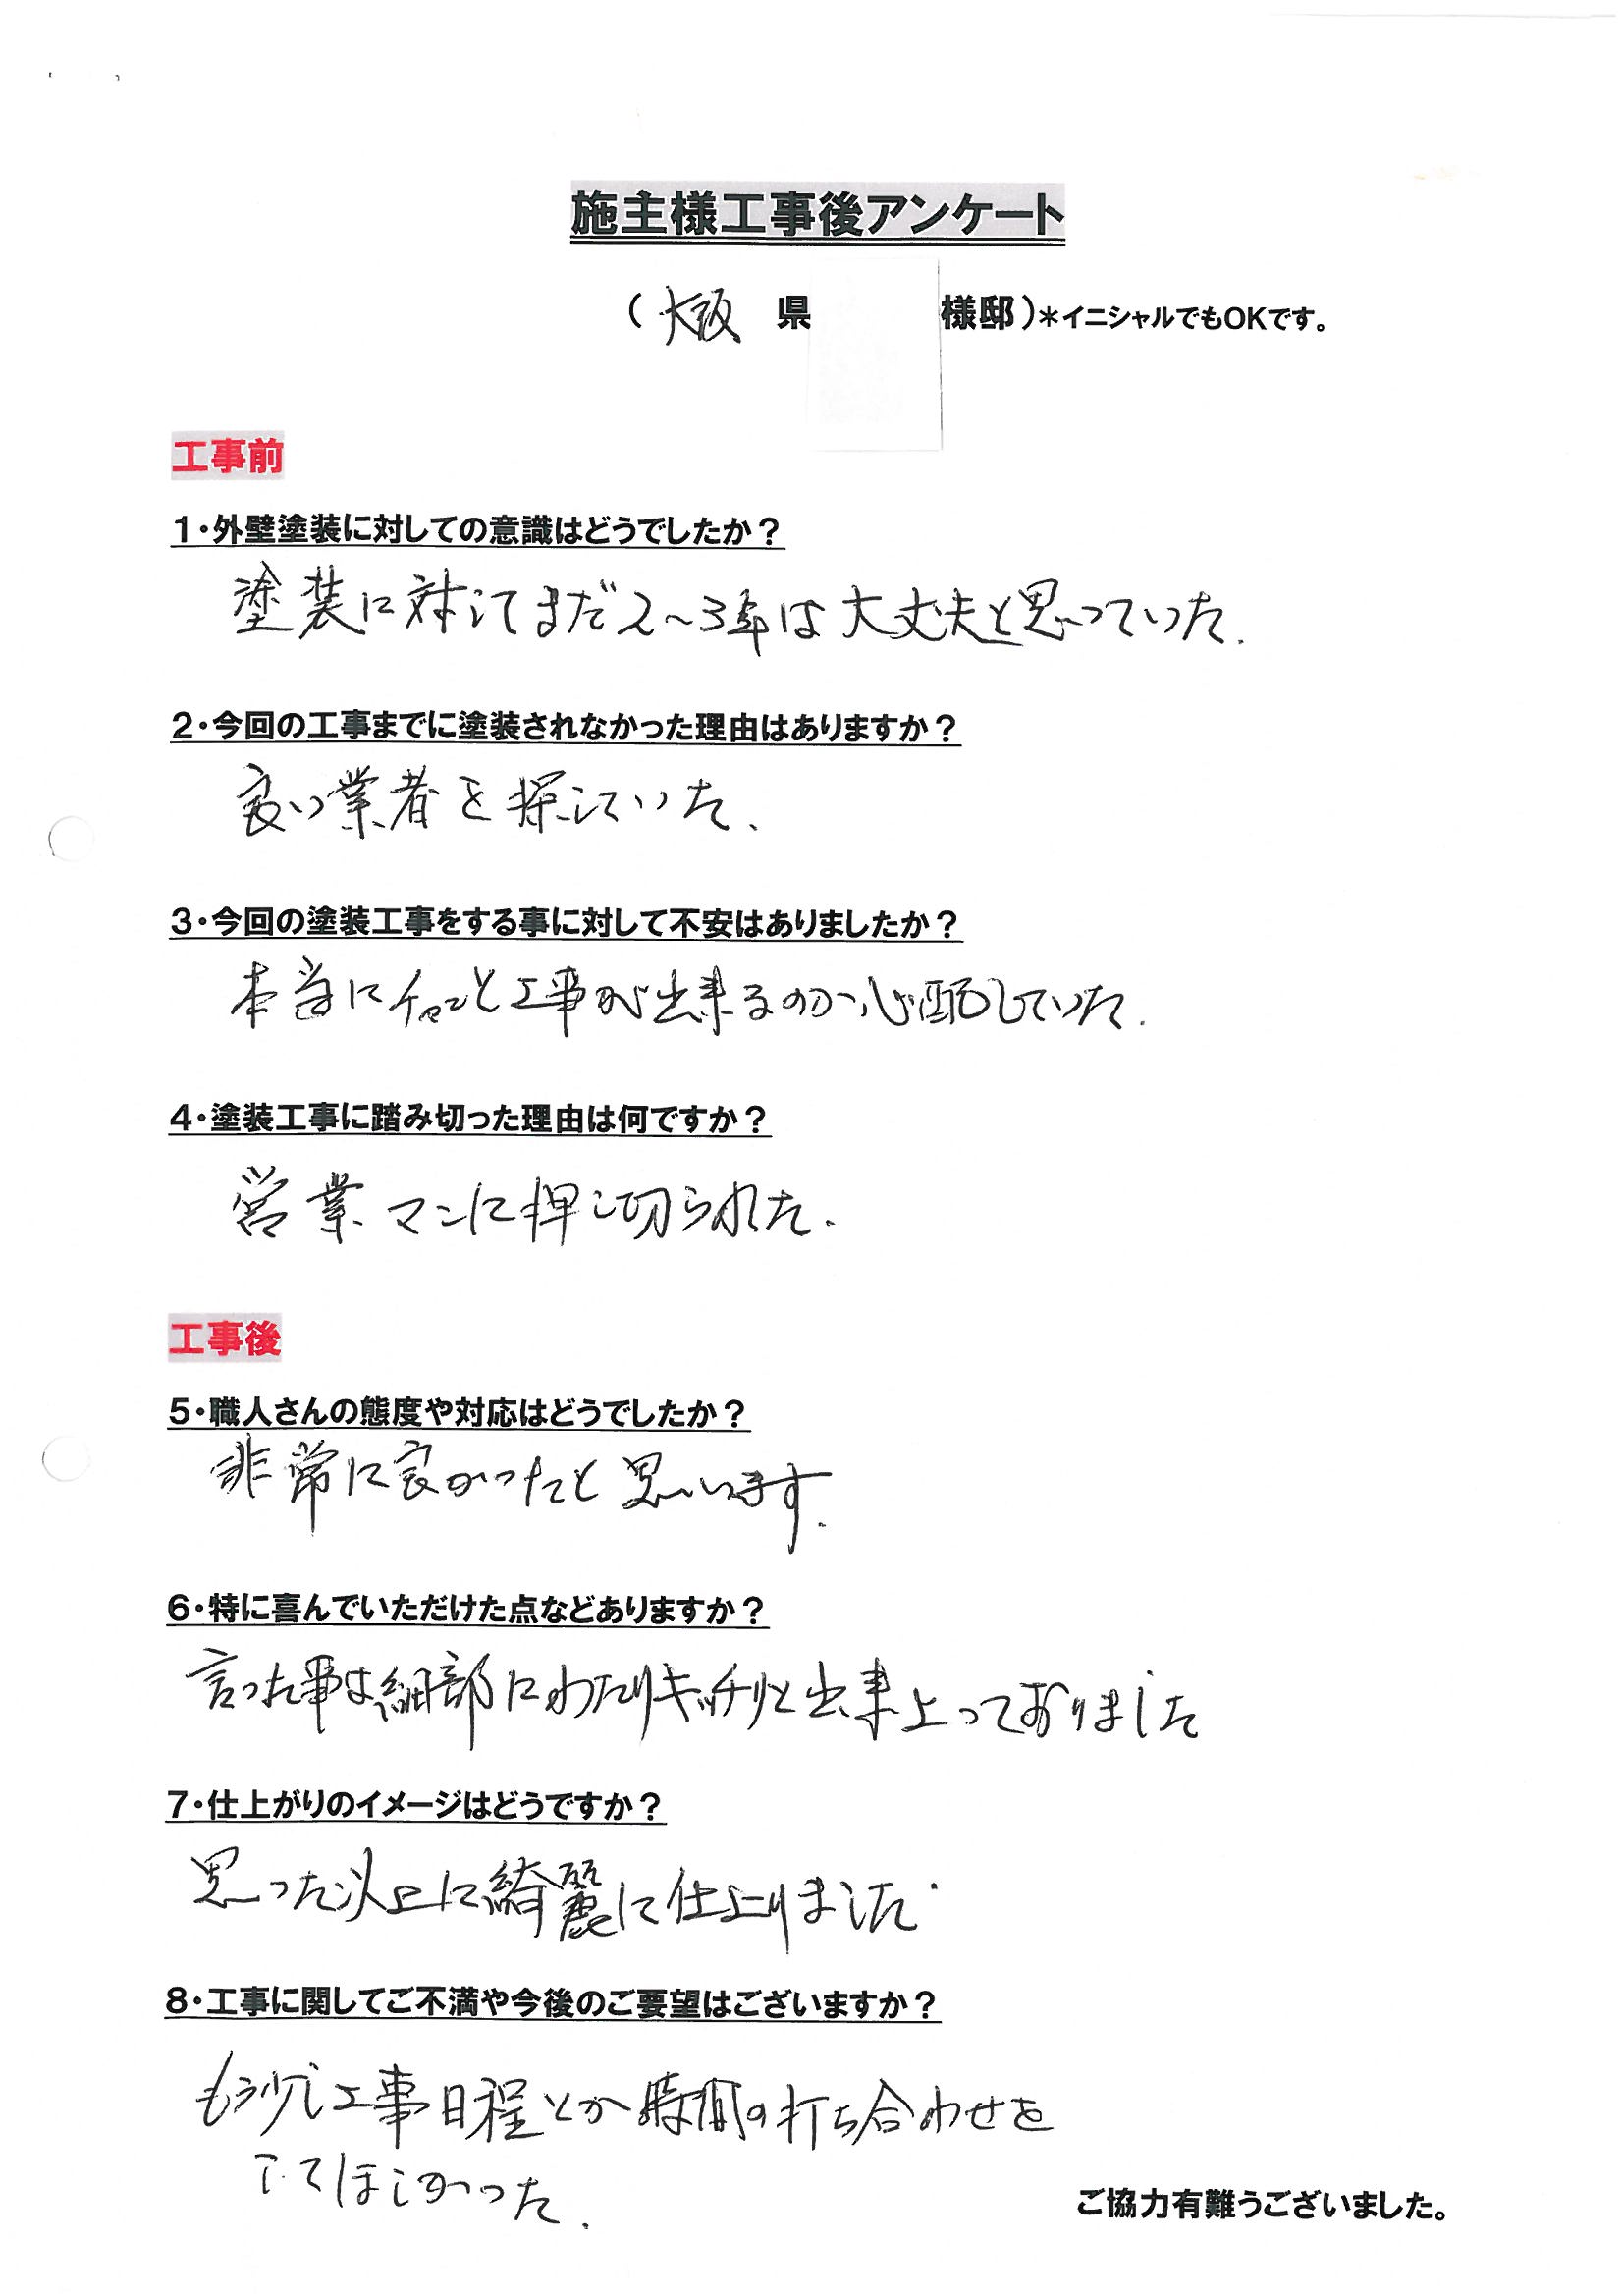 施主様工事後アンケート
（大阪 県 様邸）＊イニシャルでもOKです。
工事前
１・外壁塗装に対しての意識はどうでしたか？
塗装に対してまだ2～3年は大丈夫と思っていた.
２・今回の工事までに塗装されなかった理由はありますか？
良い業者を探していた.
３・今回の塗装工事をする事に対して不安はありましたか？
本当に と工事が出来るのか心配していた.
４・塗装工事に踏み切った理由は何ですか？
営業マンに押し切られた.
工事後
５・職人さんの態度や対応はどうでしたか？
非常に良かったと思います.
６・特に喜んでいただけた点などありますか？
言った事は細部にわたりキッチリと出来上っておりました
７・仕上がりのイメージはどうですか？
思った以上に綺麗に仕上りました.
８・工事に関してご不満や今後のご要望はございますか？
もう少し工事日程とか時間の打ち合わせを
してほしかった.
ご協力有難うございました。